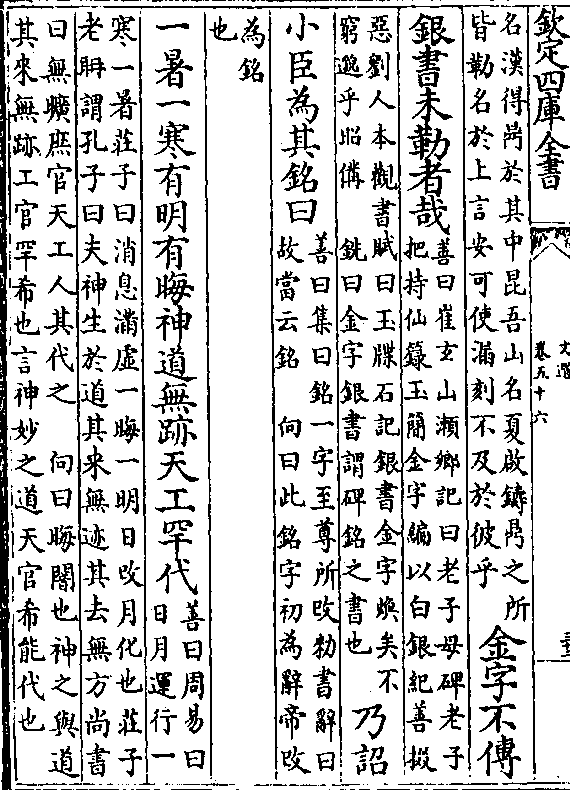 欽定四庫全書
文選
卷五十六
名漢得鼎於其中昆吾山名夏啟鑄鼎之所
皆勒名於上言安可使漏刻不及於彼乎
金字不傳
銀書未勒者哉
善曰崔玄山瀬鄉記曰老子母碑老子
把持仙籙玉簡金字編以白銀紀善掇
惡劉人本觀書賦曰玉牒石記銀書金字煥矣不
窮邈乎昭備　銑曰金字銀書謂碑銘之書也
乃詔
小臣為其銘曰
善曰集曰銘一字至尊所改勅書辭曰
故當云銘　向曰此銘字初為辭帝改
為銘
也
一暑一寒有明有晦神道無跡天工罕代
善曰周易曰
日月運行一
寒一暑莊子曰消息滿虛一晦一明日改月化也莊子
老耼謂孔子曰夫神生於道其來無迹其去無方尚書
曰無曠庶官天工人其代之　向曰晦闇也神之與道
其來無跡工官罕希也言神妙之道天官希能代也